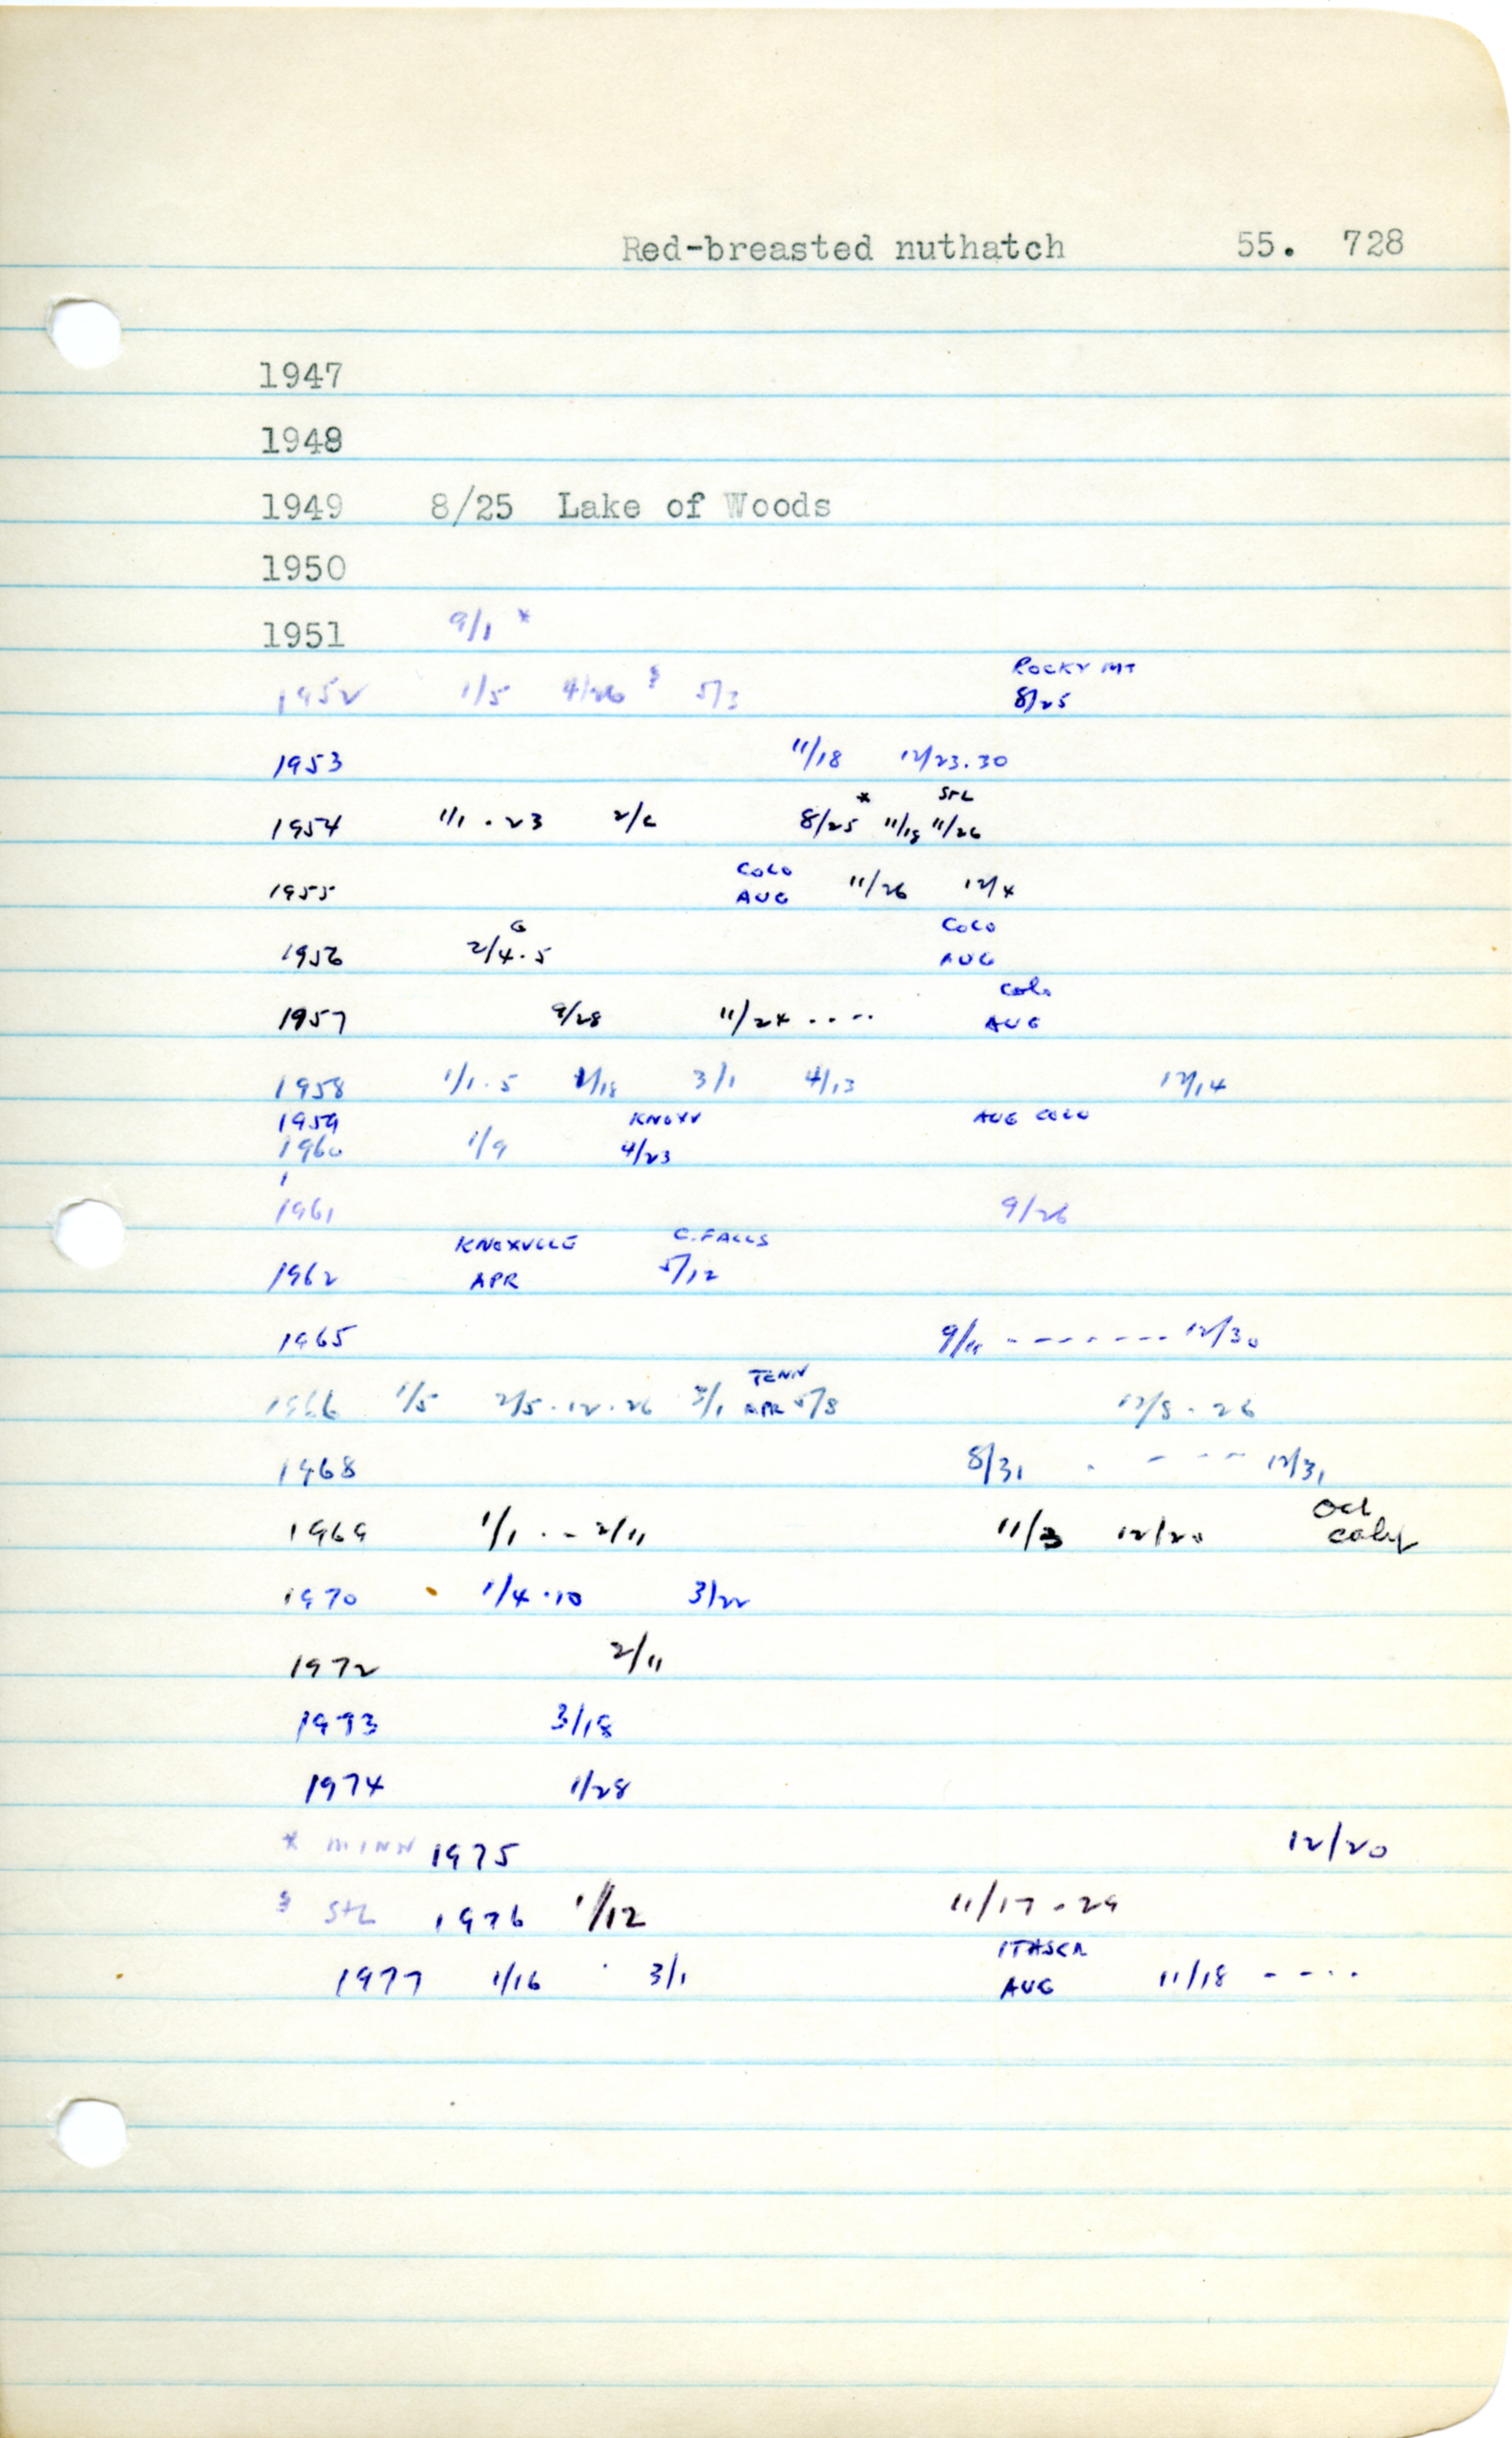 Red-breasted nuthatch 55. 728
1947
1948
1949 8/25 Lake of Woods
1950
1951 9/1 *
ROCKY MT
1952 1/5 4/26 § 5/3 8/25
1953 11/18 12/23.30
* STL
1954 1/1 . 23 2/6 8/25 11/18 11/26
COLO
1955 AUG 11/26 12/4
G COLO
1956 2/4.5 AUG
Colo
1957 9/28 11/24 .... AUG
1958 1/1.5 1/18 3/1 4/13 12/14
1959 KNOXV AUG COLO
1960 1/9 4/23
1961 9/26
KNOXVILLE C.FALLS
1962 APR 5/12
1965 9/11 ------- 12/30
TENN
1966 1/5 2/5.12.26 3/1 APR 5/8 12/8.26
1968 8/31 . - - - - 12/31
Oct
1969 1/1 . - 2/11 11/3 12/20 Calif
1970 1/4.10 3/22
1972 2/11
1973 3/18
1974 1/28
* MINN 1975 12/20
§ StL 1976 1/12 11/17.29
ITASCA
1977 1/16 . 3/1 AUG 11/18 - - . .